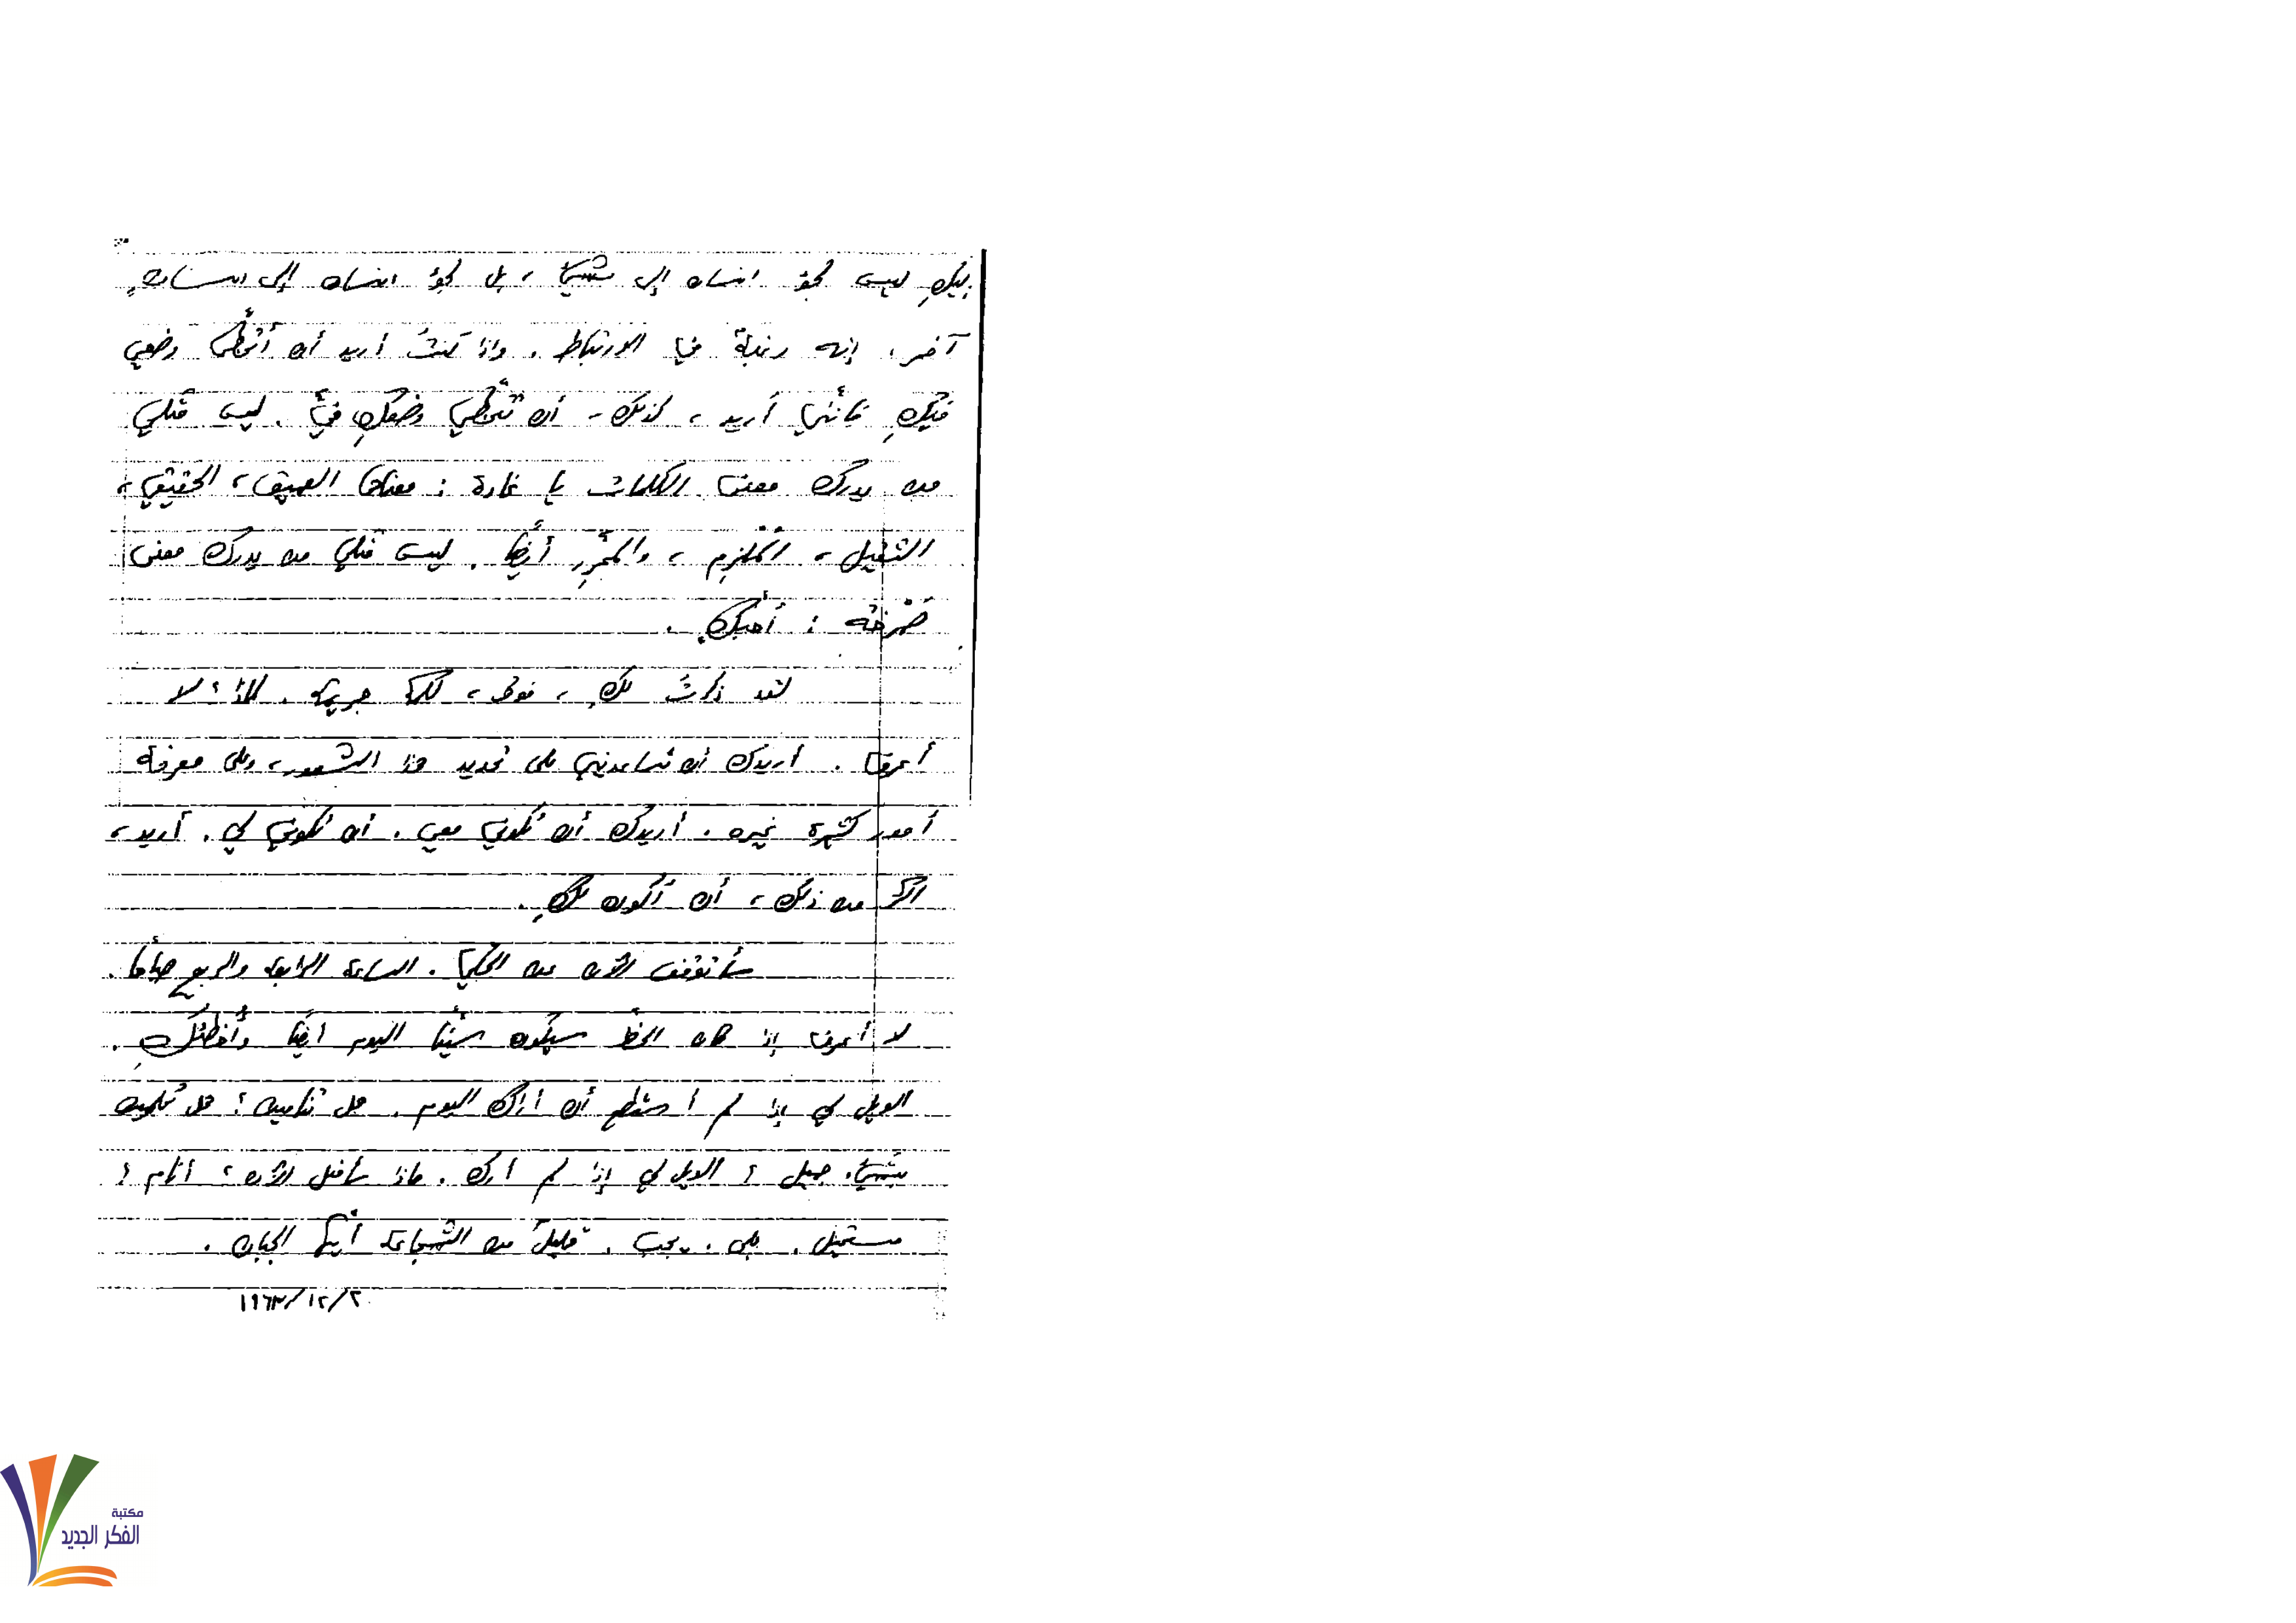 إليكِ ليست لجوء انسان إلى شيء، بل لجوء انسان إلى انسانٍ
آخر، إنه رغبة في الارتباط. واذا كنتُ أريد أن أتخطّى وضعي
فيكِ فأنني أريد، كذلك، أن تتخطّي وضعكِ فيَّ. ليس مثلي
من يدرك معنى الكلمات يا غادة: معناها العميق، الحقيقي،
الثقيل، المُلزِم، والمحرِّر أيضًا. ليس مثلي من يدرك معنى
صَرْخَة: أحبكِ.
لقد ذكرتُ لكِ، فوق، كلمة جريمة. لماذا؟ لا
أعرف. اريدك أن تساعديني على تحديد هذا الشعور، وعلى معرفة
أمور كثيرة غيره. أريدك أن تكوني معي. أن تكوني لي. أريد،
اكثر من ذلك، أن أكون لكِ.
سأتوقف الآن عن الحكي. الساعة الرابعة والربع صباحًا.
لا أعرف إذا كان الحظ سيكون سيّئًا اليوم أيضًا وأُخطئكِ.
الويل لي إذا لم أستطع أن اراك اليوم. هل تنامين؟ هل تحلمين
بشيء جميل؟ الويل لي إذا لم ارك. ماذا سأفعل الآن؟ أنام؟
مستحيل. بلى. يجب. قليلٌ من الشجاعة أيها الجبان.
١٩٦٣/١٢/٢
مكتبة
الفكر الجديد